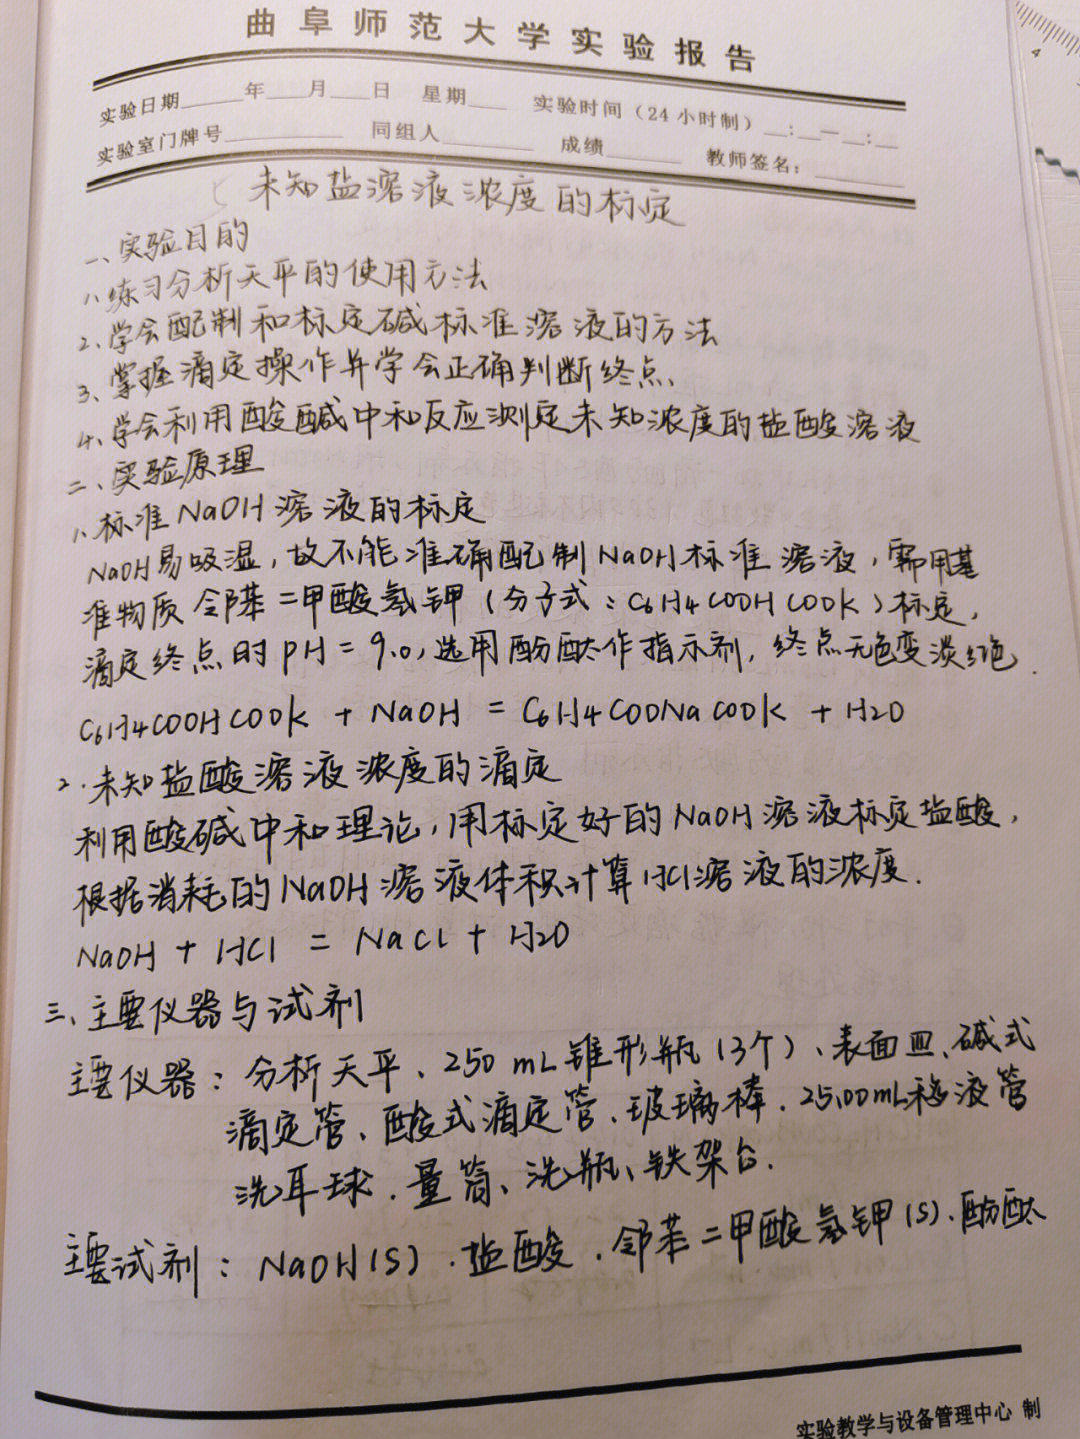 曲阜师范大学实验报告
实验日期____年___月___日 星期___ 实验时间（24小时制）__:__—__:__
实验室门牌号________ 同组人______ 成绩_____ 教师签名：______
未知盐溶液浓度的标定
一、实验目的
1、练习分析天平的使用方法
2、学会配制和标定碱标准溶液的方法
3、掌握滴定操作并学会正确判断终点
4、学会利用酸碱中和反应测定未知浓度的盐酸溶液
二、实验原理
1、标准NaOH溶液的标定
NaOH易吸湿，故不能准确配制NaOH标准溶液，需用基
准物质邻苯二甲酸氢钾（分子式：C6H4COOHCOOK）标定，
滴定终点时pH=9.0，选用酚酞作指示剂，终点无色变淡红色.
C6H4COOHCOOK + NaOH = C6H4COONaCOOK + H2O
2.未知盐酸溶液浓度的滴定
利用酸碱中和理论，用标定好的NaOH溶液标定盐酸，
根据消耗的NaOH溶液体积计算HCl溶液的浓度.
NaOH + HCl = NaCl + H2O
三、主要仪器与试剂
主要仪器：分析天平、250 mL锥形瓶（3个）、表面皿、碱式
滴定管、酸式滴定管、玻璃棒、25.00mL移液管
洗耳球、量筒、洗瓶、铁架台.
主要试剂：NaOH(s)、盐酸、邻苯二甲酸氢钾(s)、酚酞
实验教学与设备管理中心 制